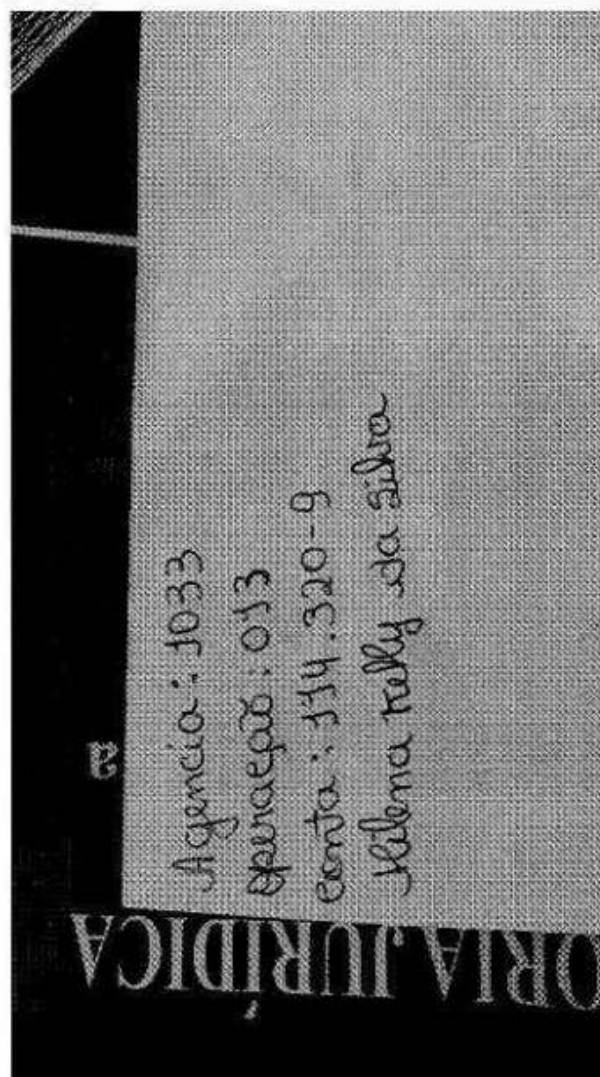 Agencia: 1033
operação: 013
conta: 114.320-9
Milena Kelly da Silva
ORIA JURÍDICA
a